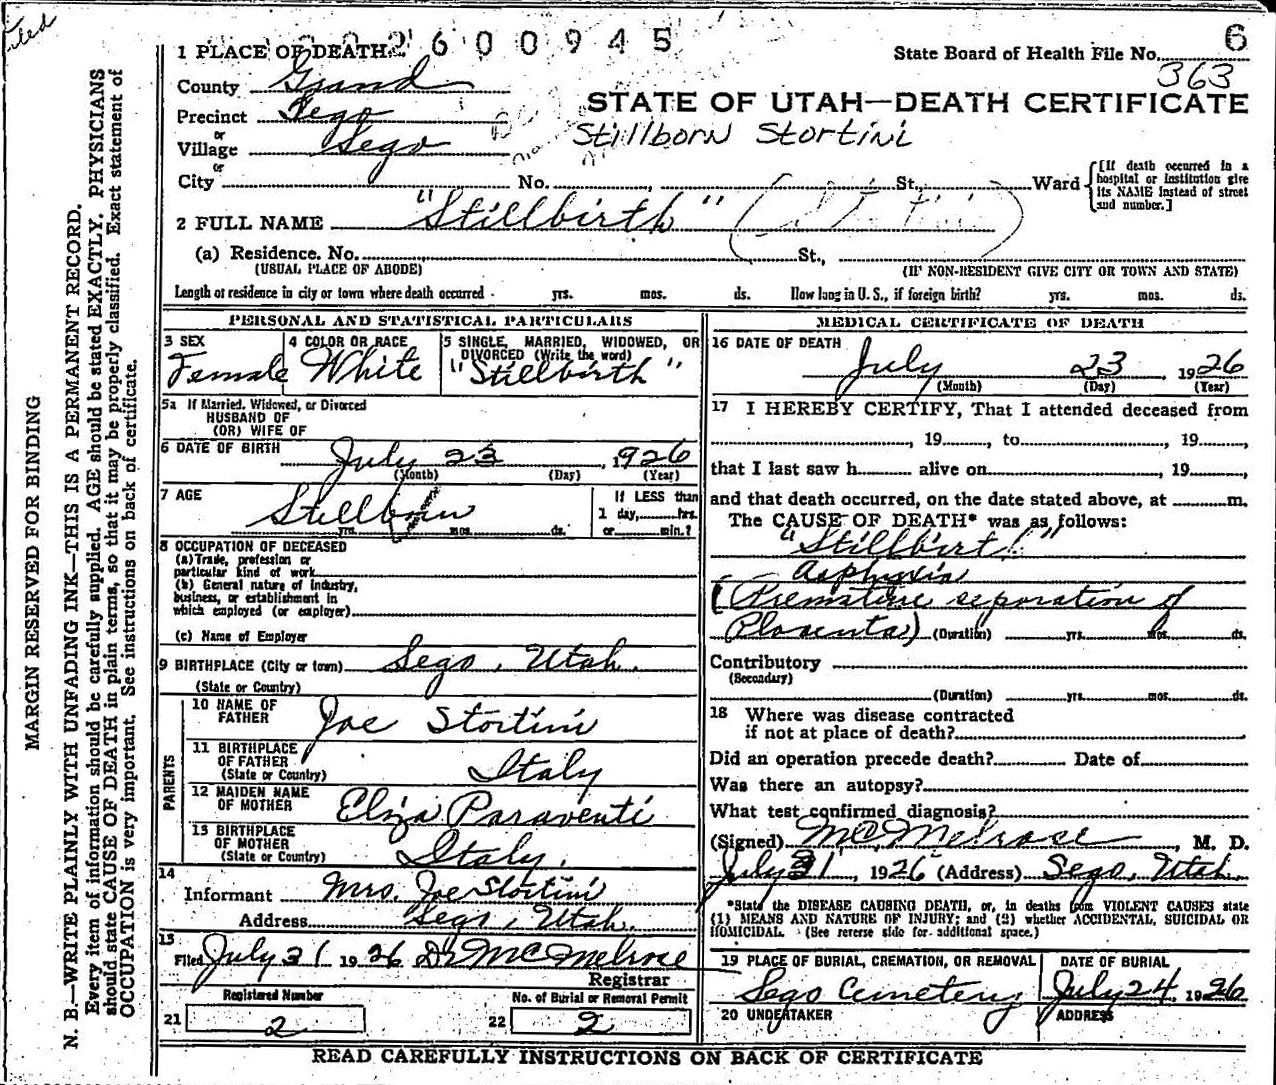 Filed
2600945
6
1 PLACE OF DEATH
State Board of Health File No. 363
County Grand
STATE OF UTAH—DEATH CERTIFICATE
Precinct Sego
Stillborn Stortini
or
Village Sego
or
City No. , St., Ward
[If death occurred in a hospital or institution give its NAME instead of street and number.]
2 FULL NAME "Stillbirth"
(a) Residence. No. St.,
(USUAL PLACE OF ABODE) (IF NON-RESIDENT GIVE CITY OR TOWN AND STATE)
Length of residence in city or town where death occurred yrs. mos. ds. How long in U. S., if foreign birth? yrs. mos. ds.
PERSONAL AND STATISTICAL PARTICULARS
3 SEX
Female
4 COLOR OR RACE
White
5 SINGLE, MARRIED, WIDOWED, OR
DIVORCED (Write the word)
"Stillbirth"
5a If Married, Widowed, or Divorced
HUSBAND OF
(OR) WIFE OF
6 DATE OF BIRTH
July 23, 1926
(Month) (Day) (Year)
7 AGE
Stillborn
yrs. mos. ds.
If LESS than
1 day, hrs.
or min.?
8 OCCUPATION OF DECEASED
(a) Trade, profession or
particular kind of work
(b) General nature of industry,
business, or establishment in
which employed (or employer)
(c) Name of Employer
9 BIRTHPLACE (City or town) Sego, Utah.
(State or Country)
PARENTS
10 NAME OF
FATHER Joe Stortini
11 BIRTHPLACE
OF FATHER Italy
(State or Country)
12 MAIDEN NAME
OF MOTHER Eliza Paraventi
13 BIRTHPLACE
OF MOTHER
(State or Country) Italy.
14
Informant Mrs. Joe Stortini
Address Sego, Utah.
15
Filed July 31 1926 Dr MC Melrose
Registrar
Registered Number
21 2
No. of Burial or Removal Permit
22 2
MEDICAL CERTIFICATE OF DEATH
16 DATE OF DEATH
July 23, 1926
(Month) (Day) (Year)
17 I HEREBY CERTIFY, That I attended deceased from
, 19 , to , 19 ,
that I last saw h alive on , 19
and that death occurred, on the date stated above, at m.
The CAUSE OF DEATH* was as follows:
"Stillbirth"
Asphyxia
(Premature separation of
Placenta) (Duration) yrs. mos. ds.
Contributory
(Secondary)
(Duration) yrs. mos. ds.
18 Where was disease contracted
if not at place of death?
Did an operation precede death? Date of
Was there an autopsy?
What test confirmed diagnosis?
(Signed) MC Melrose, M. D.
July 31, 1926 (Address) Sego, Utah
*State the DISEASE CAUSING DEATH, or, in deaths from VIOLENT CAUSES state
(1) MEANS AND NATURE OF INJURY; and (2) whether ACCIDENTAL, SUICIDAL OR
HOMICIDAL. (See reverse side for additional space.)
19 PLACE OF BURIAL, CREMATION, OR REMOVAL
Sego Cemetery
DATE OF BURIAL
July 24 1926
20 UNDERTAKER
ADDRESS
READ CAREFULLY INSTRUCTIONS ON BACK OF CERTIFICATE
MARGIN RESERVED FOR BINDING
N. B.—WRITE PLAINLY WITH UNFADING INK—THIS IS A PERMANENT RECORD.
Every item of information should be carefully supplied. AGE should be stated EXACTLY. PHYSICIANS
should state CAUSE OF DEATH in plain terms, so that it may be properly classified. Exact statement of
OCCUPATION is very important. See instructions on back of certificate.